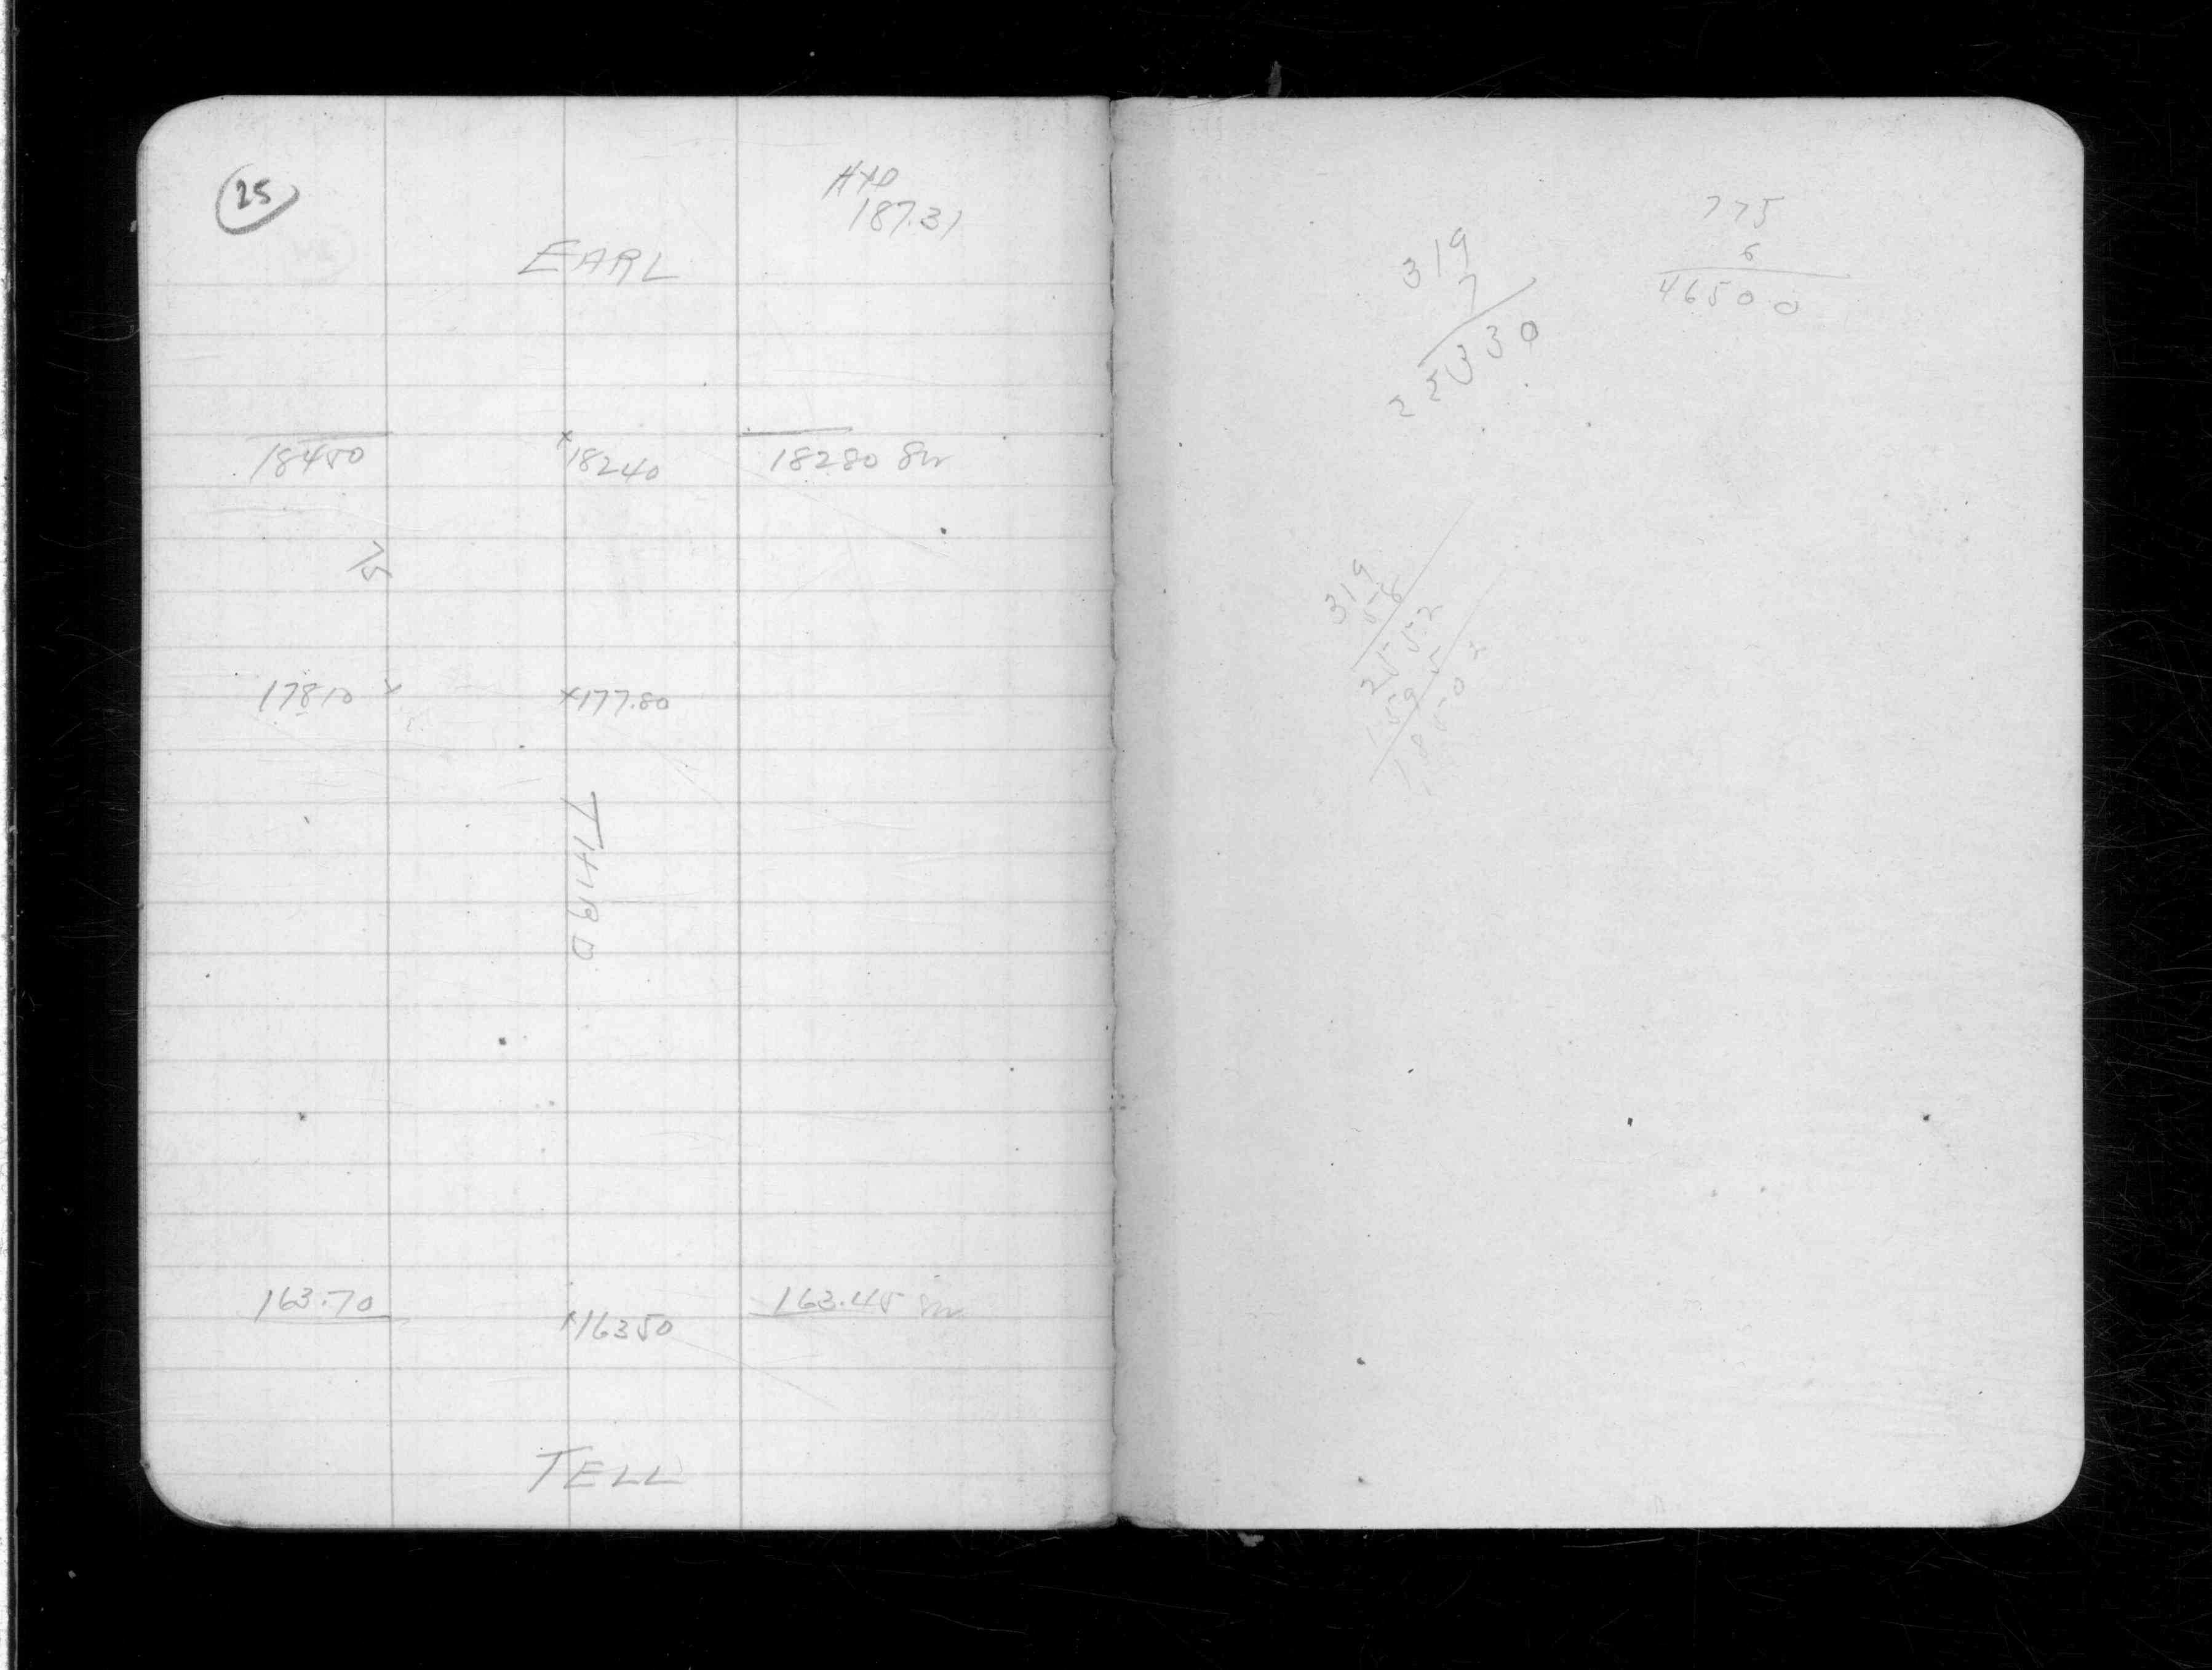 25
HYD
187.31
EARL
18450 x18240 18280 Sw
17810 x177.80
THIRD
163.70 x16350 163.45 Sw
TELL
775
6
46500
319
7
22330
319
58
2552
1595
18502